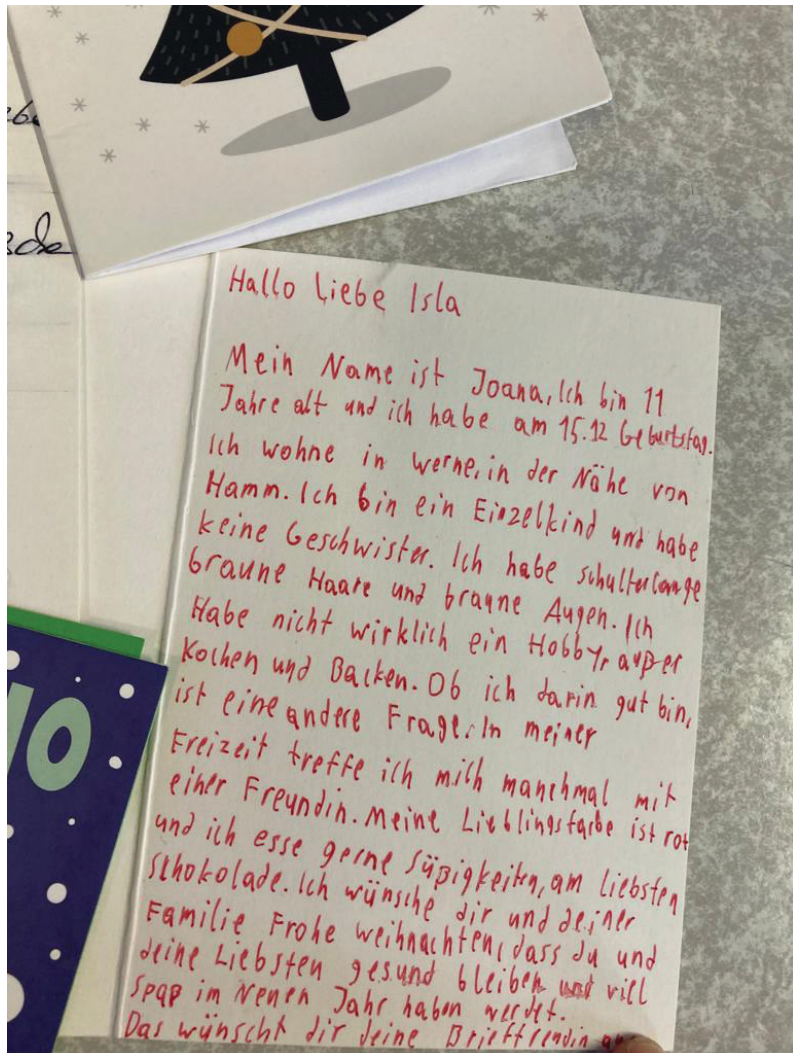 Hallo Liebe Isla
Mein Name ist Joana, Ich bin 11
Jahre alt und ich habe am 15.12 Geburtstag.
Ich wohne in werne, in der Nähe von
Hamm. Ich bin ein Einzelkind und habe
keine Geschwister. Ich habe schulterlange
braune Haare und braune Augen. Ich
Habe nicht wirklich ein Hobby, außer
Kochen und Backen. Ob ich darin gut bin,
ist eine andere Frage. In meiner
Freizeit treffe ich mich manchmal mit
einer Freundin. Meine Lieblingsfarbe ist rot
und ich esse gerne Süßigkeiten, am liebsten
Schokolade. Ich wünsche dir und deiner
Familie Frohe weihnachten, dass du und
deine Liebsten gesund bleiben und viel
Spaß im Neuen Jahr haben werdet.
Das wünscht dir deine Brieffrendin
10